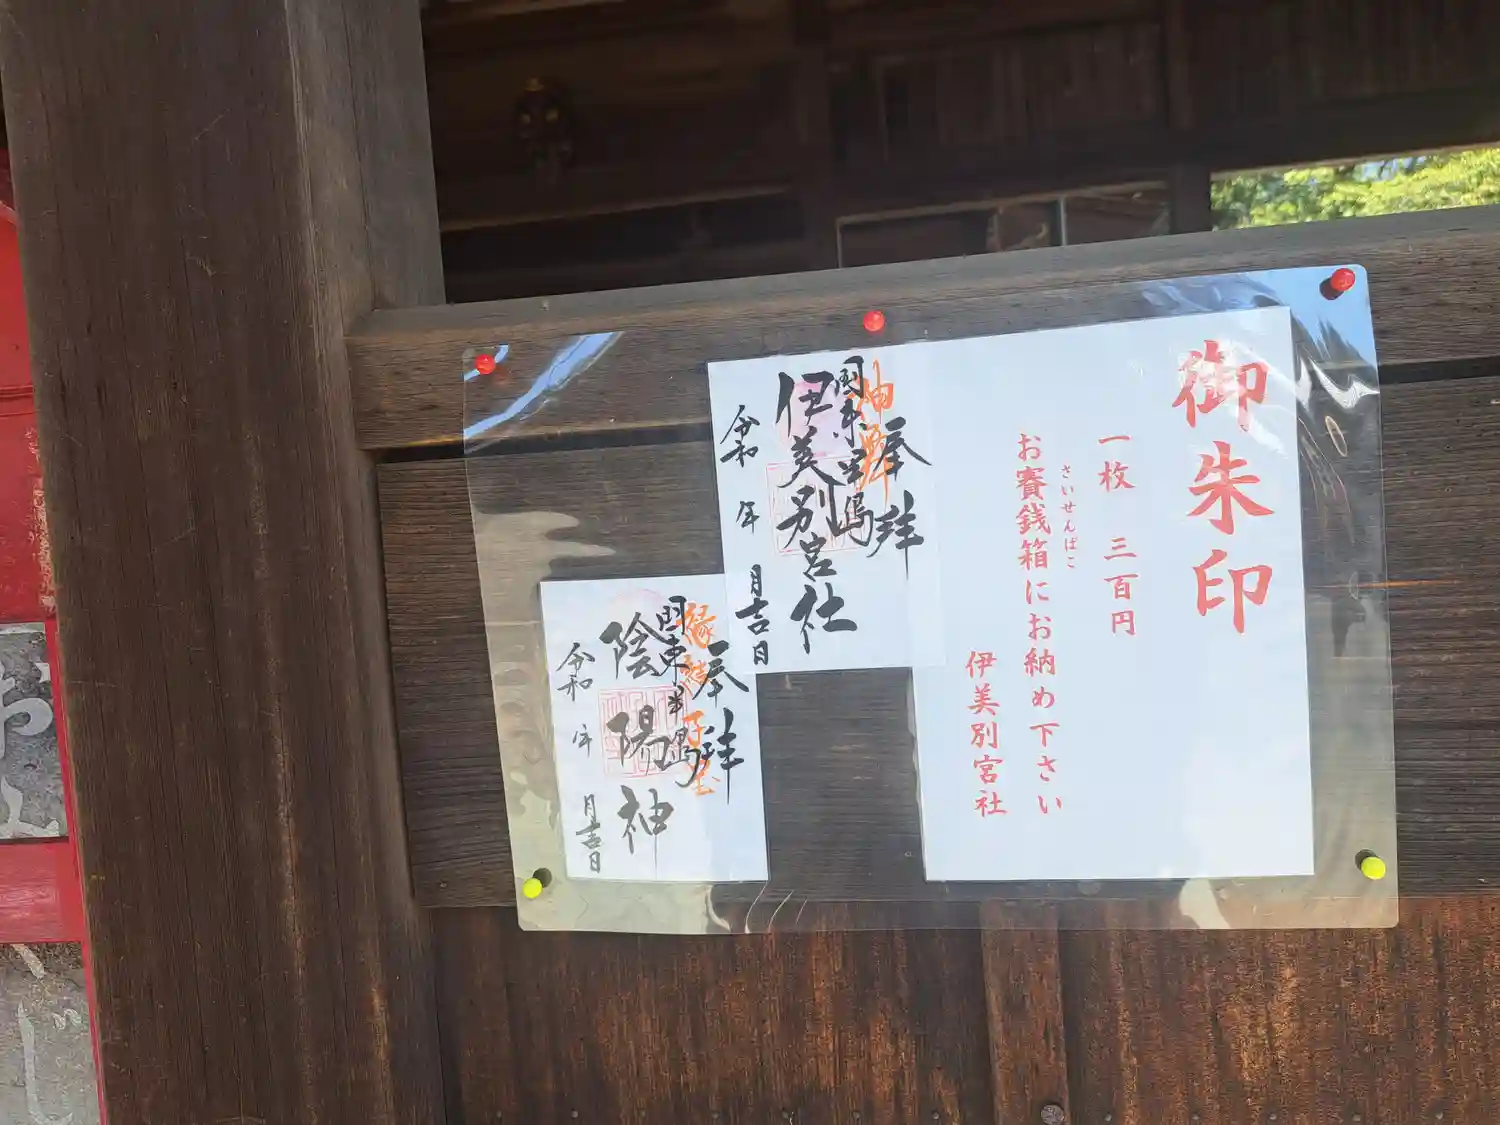 御朱印
一枚 三百円
さいせんばこ
お賽銭箱にお納め下さい
伊美別宮社
奉拝
国東半島
伊美別宮社
令和 年 月吉日
縁結 子宝
奉拝
国東半島
陰陽神
令和 年 月吉日